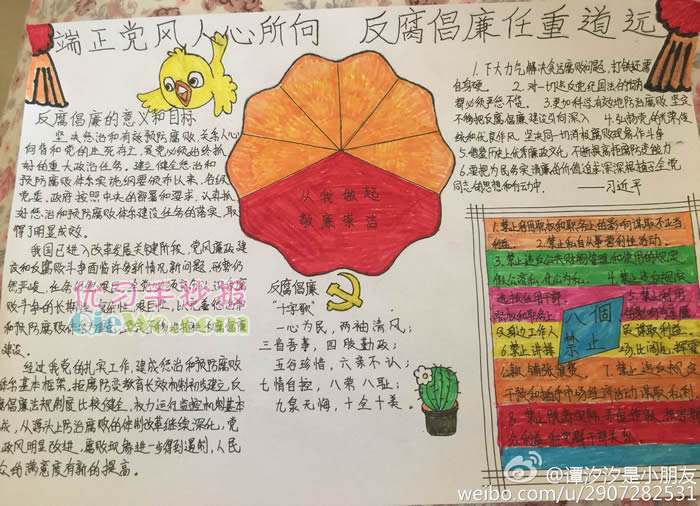 端正党风人心所向 反腐倡廉任重道远
反腐倡廉的意义和目标
坚决惩治和有效预防腐败,关系人心
向背和党的生死存亡,是党必须始终抓
好的重大政治任务。建立健全惩治和
预防腐败体系实施纲要颁布以来,各级
党委、政府按照中央的部署和要求,认真抓
好惩治和预防腐败体系建设任务的落实,取
得了明显成效。
我国已进入改革发展关键阶段,党风廉政建
设和反腐败斗争面临许多新情况新问题,形势仍
然严峻,任务
败斗争的长期
和预防腐败体系
建设。
经过我党的扎实工作,建成惩治和预防腐败
体系基本框架,拒腐防变教育长效机制初步建立,反
腐倡廉法规制度比较健全,权力运行监控机制基本
成,从源头上防治腐败的体制改革继续深化,党
政风明显改进,腐败现象进一步得到遏制,人民
众的满意度有新的提高。
优习手抄报
从我做起
敬廉崇洁
反腐倡廉
“十字歌”
一心为民,两袖清风;
三省吾事,四股勤政;
五谷珍惜,六亲不认;
七情自控,八荣八耻;
九泉无悔,十全十美。
1.下大力气解决贪污腐败问题,打铁还需
自身硬。 2.对一切违反党纪国法的行为,
都必须严惩不贷。 3.要加科学有效地防治腐败,坚定
不移把反腐倡廉建设引向深入 4.弘扬党的光荣传
统和优良作风,坚决同一切消极腐败现象作斗争
5.借鉴历史上优秀廉政文化,不断提高拒腐防变能力
6.要把为民务实清廉的价值追求深深根植于全党
同志的思想和行动中。 ——习近平
八個
禁止
1.禁止利用职权和职务上的影响谋取不正当
利益。 2.禁止私自从事营利性活动。
3.禁止违反公共财物管理和使用的规定,
假公济私,化公为私。 4.禁止违反规定
选拔任用干部。 5.禁止利用
职权和职务上
及身边工作人 员谋取利益
6.禁止讲排 场、比阔气、挥霍
公款、铺张浪费。 7.禁止违反规定
干预和插手市场经济活动,谋取私利
@谭汐汐是小朋友
weibo.com/u/2907282531